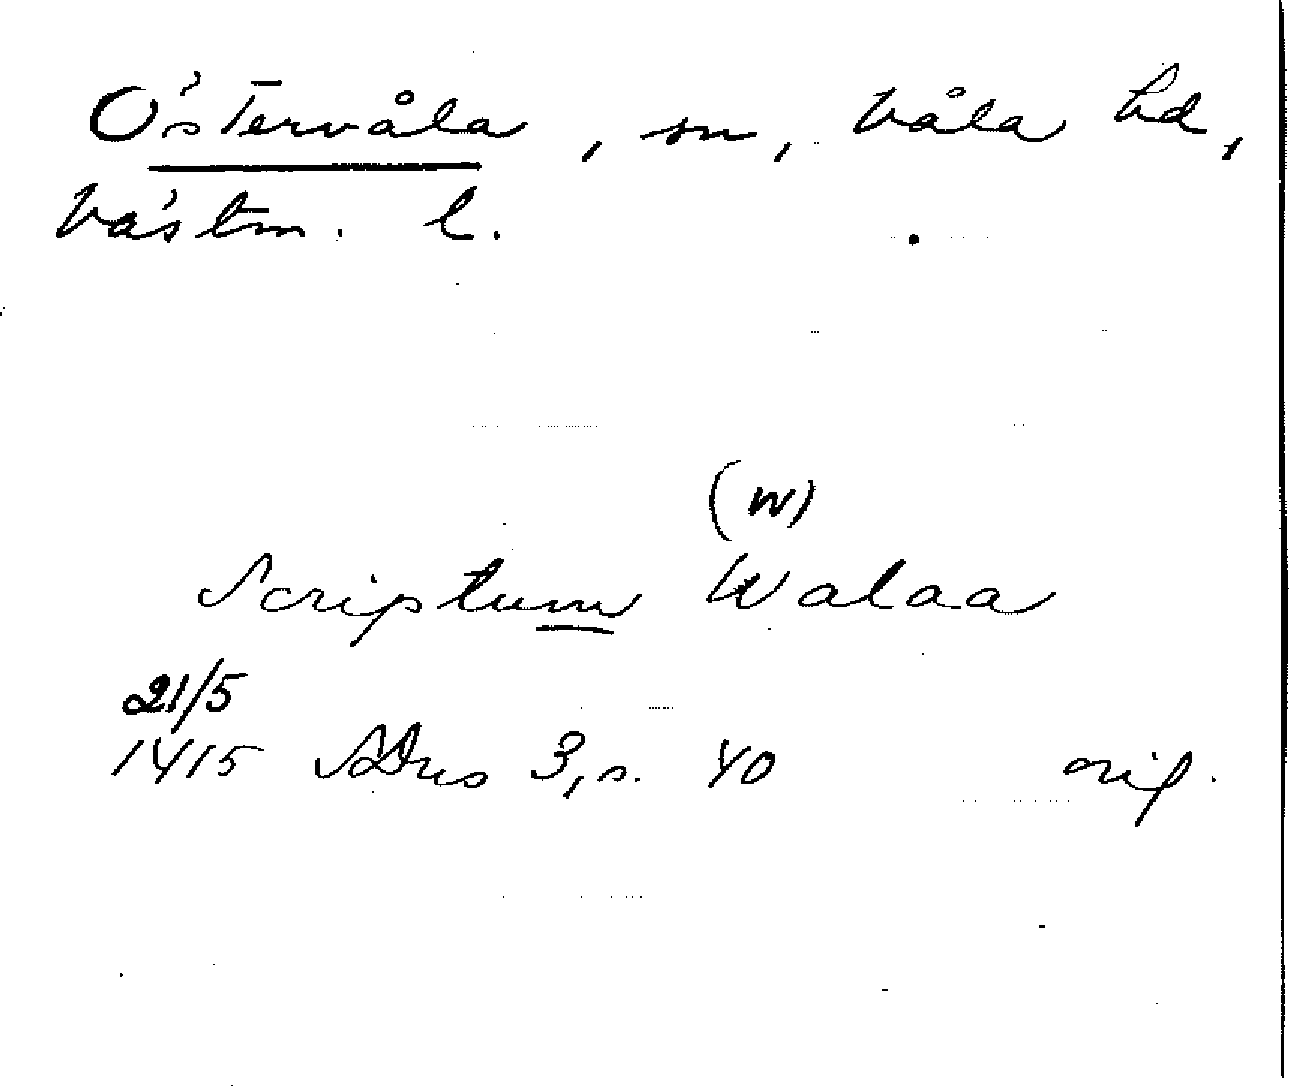 Östervåla, sn, Våla hd,
Västm. l.
(W)
Scriptum Walaa
21/5
1415 SDns 3, s. 40 orig.